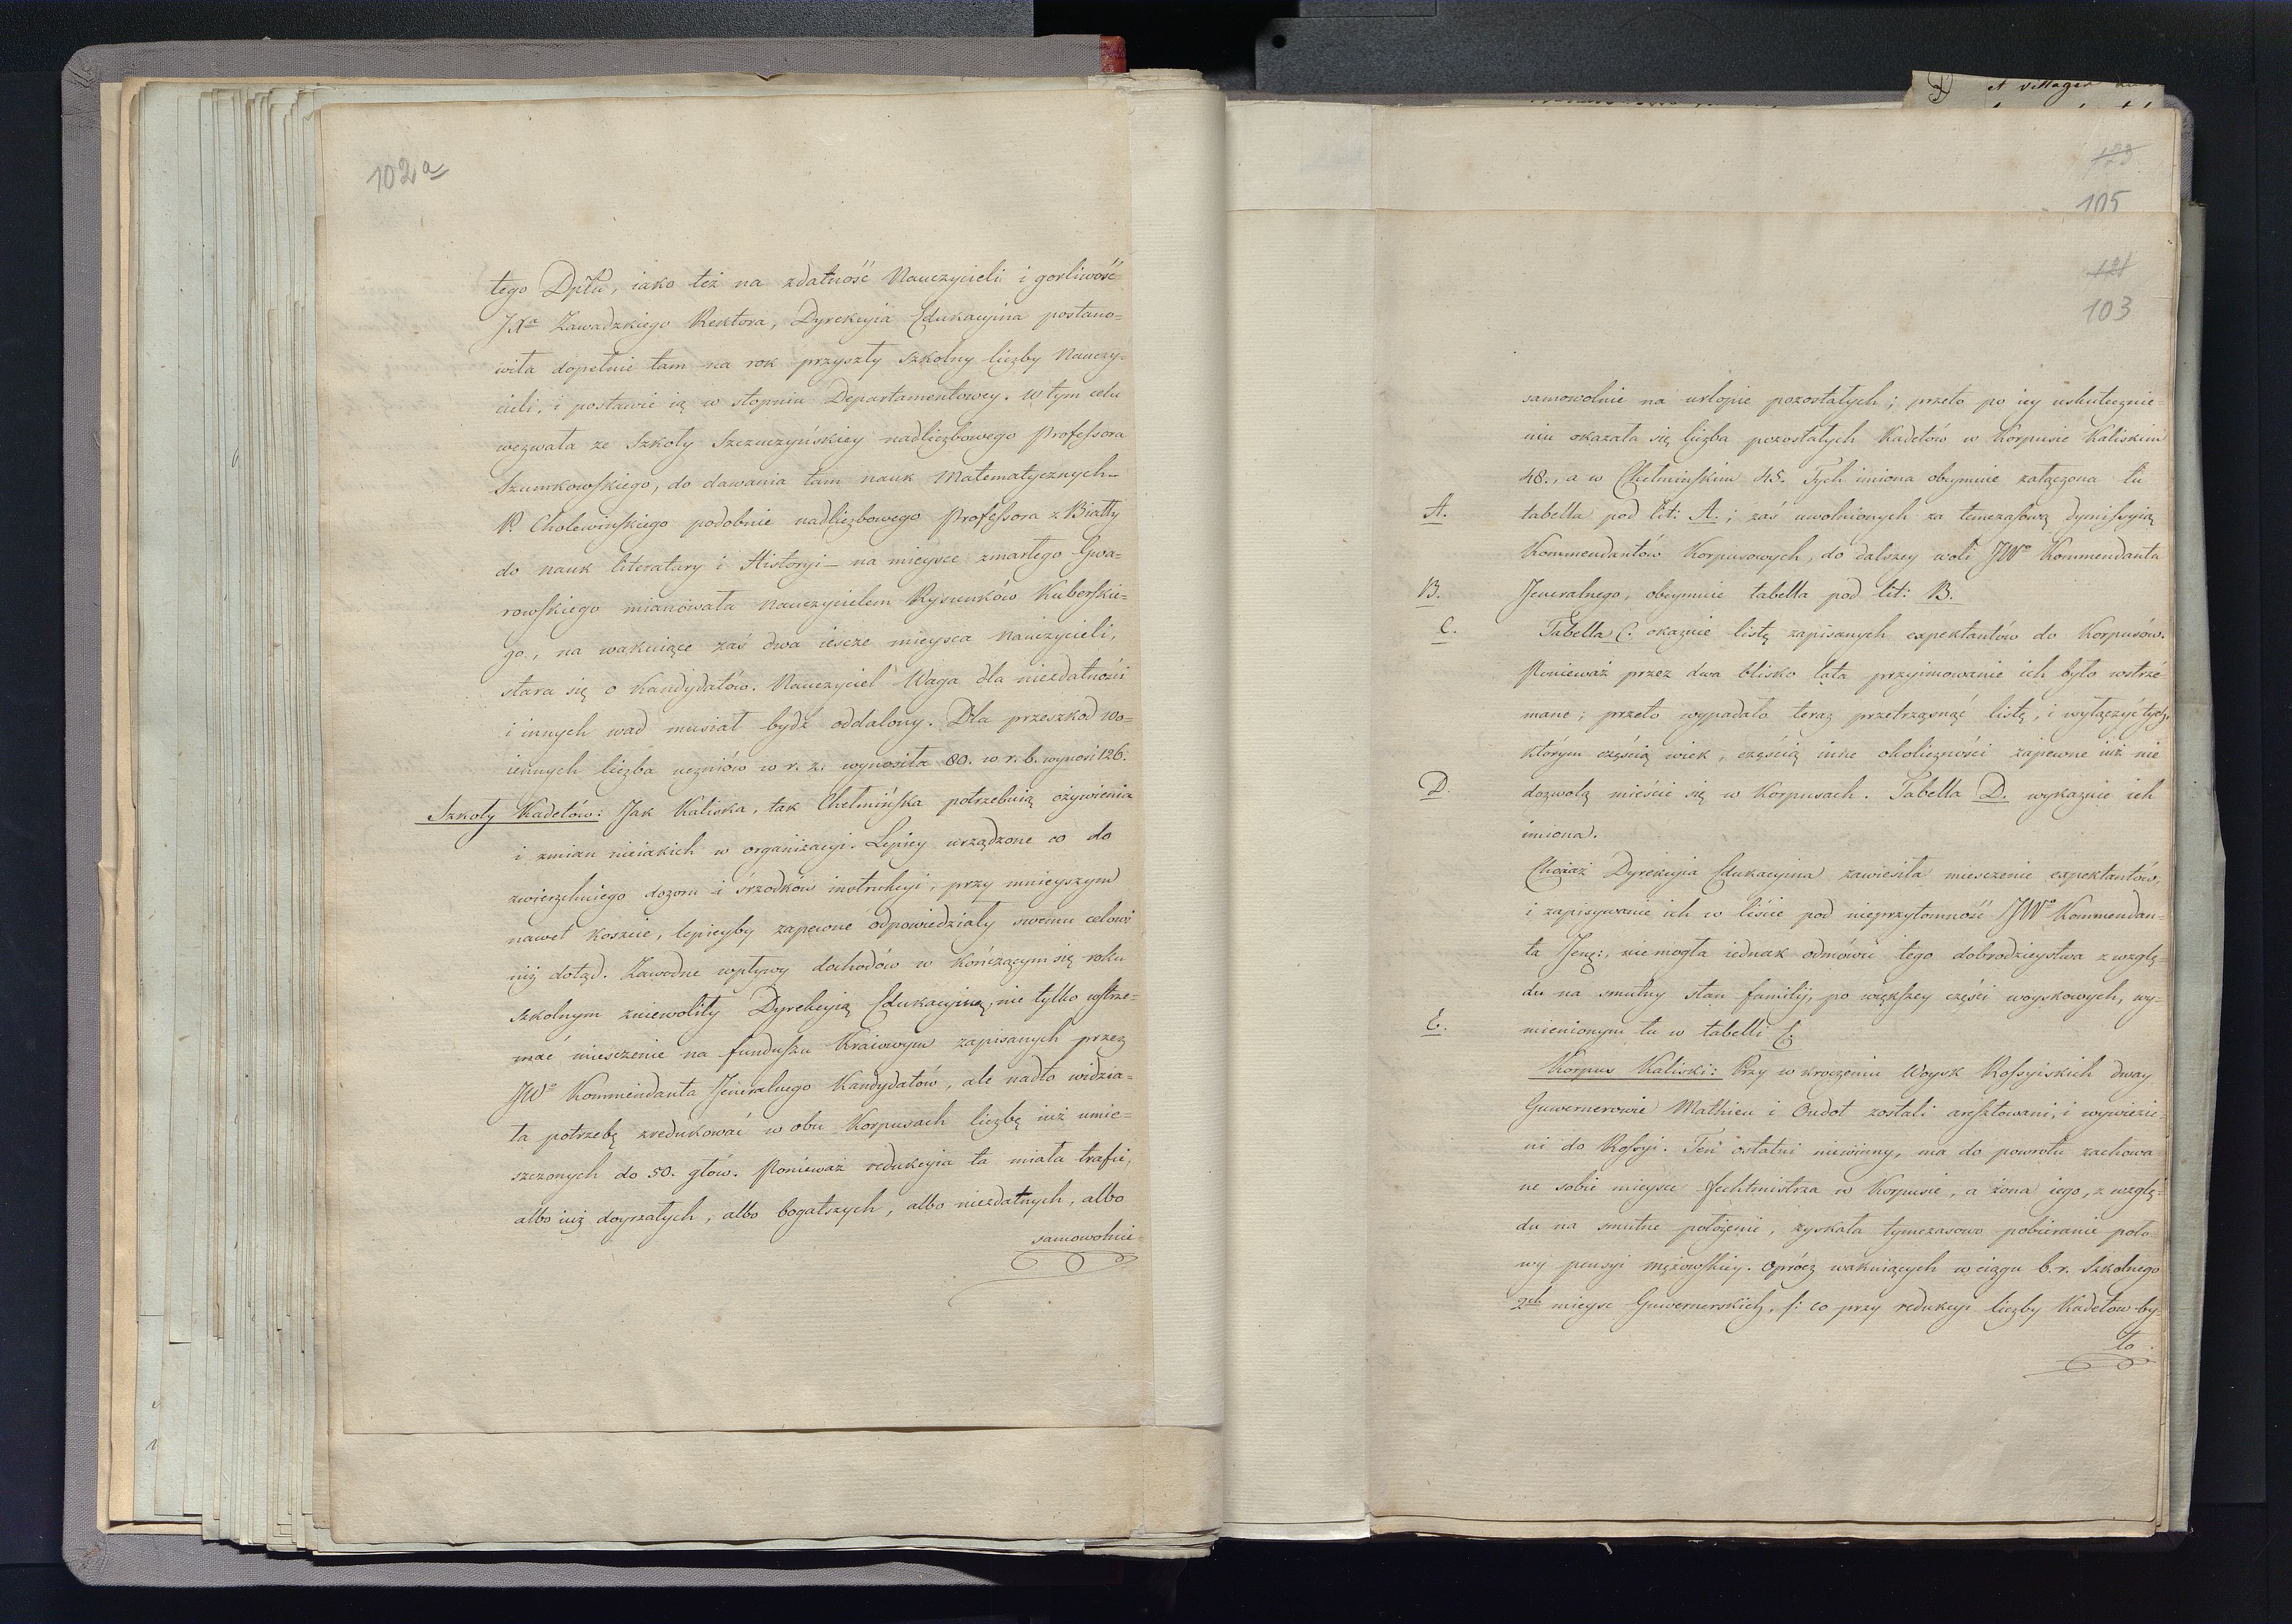 102a
tego Dpttu, iako też na zdatność Nauczycieli i gorliwość
JXa Zawadzkiego Rektora, Dyrekcyia Edukacyina postano=
wiła dopełnić tam na rok przyszły szkolny liczby Nauczy=
cieli, i postawić ią w stopniu Departamentowey. W tym celu
wezwała ze Szkoły Szczuczyńskiey nadliczbowego Professora
Szumkowskiego, do dawania tam nauk Matematycznych–
P. Cholewińskiego podobnie nadliczbowego Professora z Białły
do nauk literatury i Historyi – na mieysce zmarłego Gwa=
rowskiego mianowała Nauczycielem Rysunków Kuberskie=
go, na wakuiące zaś dwa iescze mieysca Nauczycieli,
stara się o Kandydatów. Nauczyciel Waga dla niezdatności
i innych wad musiał bydź oddalony. Dla przeszkod wo=
iennych liczba uczniów w r. z. wynosiła 80. w r. b. wynosi 126.
Szkoły Kadetów: Jak Kaliska, tak Chełmińska potrzebuią ożywienia
i zmian nieiakich w organizacyi. Lepiey urządzone co do
zwierzchniego dozoru i śrzodków instrukcyi, przy mnieyszym
nawet koszcie, lepieyby zapewne odpowiedziały swemu celowi
niż dotąd. Zawodne wpływy dochodów w kończącym się roku
szkolnym zniewoliły Dyrekcyią Edukacyiną, nie tylko wstrzy=
mać miesczenie na funduszu Kraiowym zapisanych przez
JWo Kommendanta Jeneralnego Kandydatów, ale nadto widzia=
ła potrzebę zredukować w obu Korpusach liczbę iuż umie=
szczonych do 50. głów. Ponieważ redukcyia ta miała trafić,
albo iuż doyrzałych, albo bogatszych, albo niezdatnych, albo
samowolnie=
129
105
121
103
samowolnie na urlopie pozostałych; przeto po iey uskutecznie=
niu okazała się liczba pozostałych Kadetów w Korpusie Kaliskim
48., a w Chełmińskim 45. Tych imiona obeymuie załączona tu
A. tabella pod lit: A.; zaś uwolnionych za tymczasową dymissyią
Kommendantów Korpusowych, do dalszey woli JWo Kommendanta
B. Jeneralnego, obeymuie tabella pod lit: B.
C. Tabella C. okazuie listę zapisanych expektantów do Korpusów.
Ponieważ przez dwa blisko lata przyimowanie ich było wstrzy=
mane; przeto wypadało teraz przetrząsnąć listę, i wyłączyć tych,
którym częścią wiek, częścią inne okoliczności zapewne iuż nie
D. dozwolą mieścić się w Korpusach. Tabella D. wykazuie ich
imiona.
Chociaż Dyrekcyia Edukacyina zawiesiła miesczenie expektantów,
i zapisywanie ich w liście pod nieprzytomność JWo Kommendan=
ta Jenę:, nie mogła iednak odmówić tego dobrodzieystwa z wzglę=
du na smutny stan familij, po większey części woyskowych, wy=
E. mienionym tu w tabelli E.
Korpus Kaliski: Przy wkroczeniu Woysk Rossyiskich dway
Guwernerowie Mathieu i Oudot zostali aresztowani, i wywiezie=
ni do Rossyi. Ten ostatni niewinny, ma do powrotu zachowa=
ne sobie mieysce fechtmistrza w Korpusie, a żona iego, z wzglę=
du na smutne położenie, zyskała tymczasowo pobieranie poło=
wy pensyi mężowskiey. Oprócz wakuiących w ciągu b. r. Szkolnego
2ch mieysc Guwernerskich, /: co przy redukcyi liczby Kadetow by=
ło.